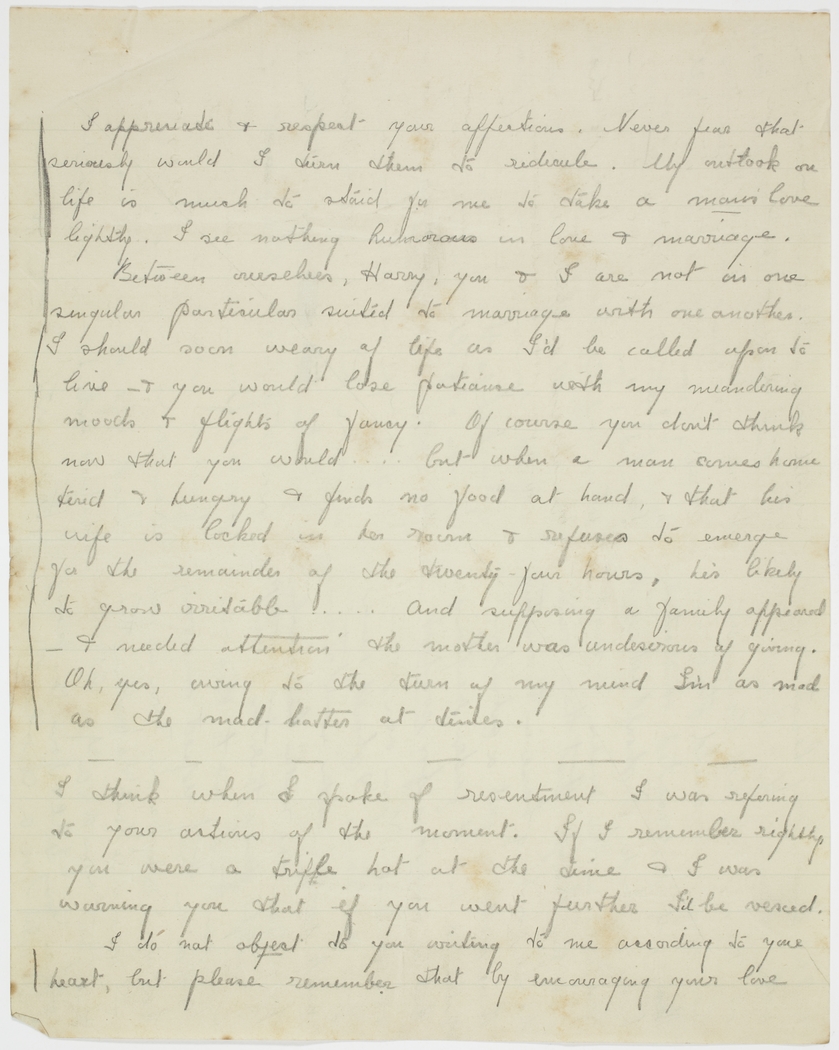 I appreciate & respect your affections. Never fear that
seriously would I turn them to ridicule. My outlook on
life is much to staid for me to take a man's love
lightly. I see nothing humorous in love & marriage.
Between ourselves, Harry, you & I are not in one
singular particular suited to marriage with one another.
I should soon weary of life as I'd be called upon to
live — & you would lose patience with my meandering
moods & flights of fancy. Of course you don't think
now that you would .... but when a man comes home
tired & hungry & finds no food at hand, & that his
wife is locked in her room & refuses to emerge
for the remainder of the twenty-four hours, he's likely
to grow irritable !..... And supposing a family appeared
— & needed attention the mother was undesirous of giving.
Oh, yes, owing to the turn of my mind I'm as mad
as the mad-hatter at times.
— — — — — —
I think when I spoke of resentment I was refering
to your actions of the moment. If I remember rightly
you were a trifle hot at the time & I was
warning you that if you went further I'd be vexed.
I do not object to you writing to me according to your
heart, but please remember that by encouraging your love